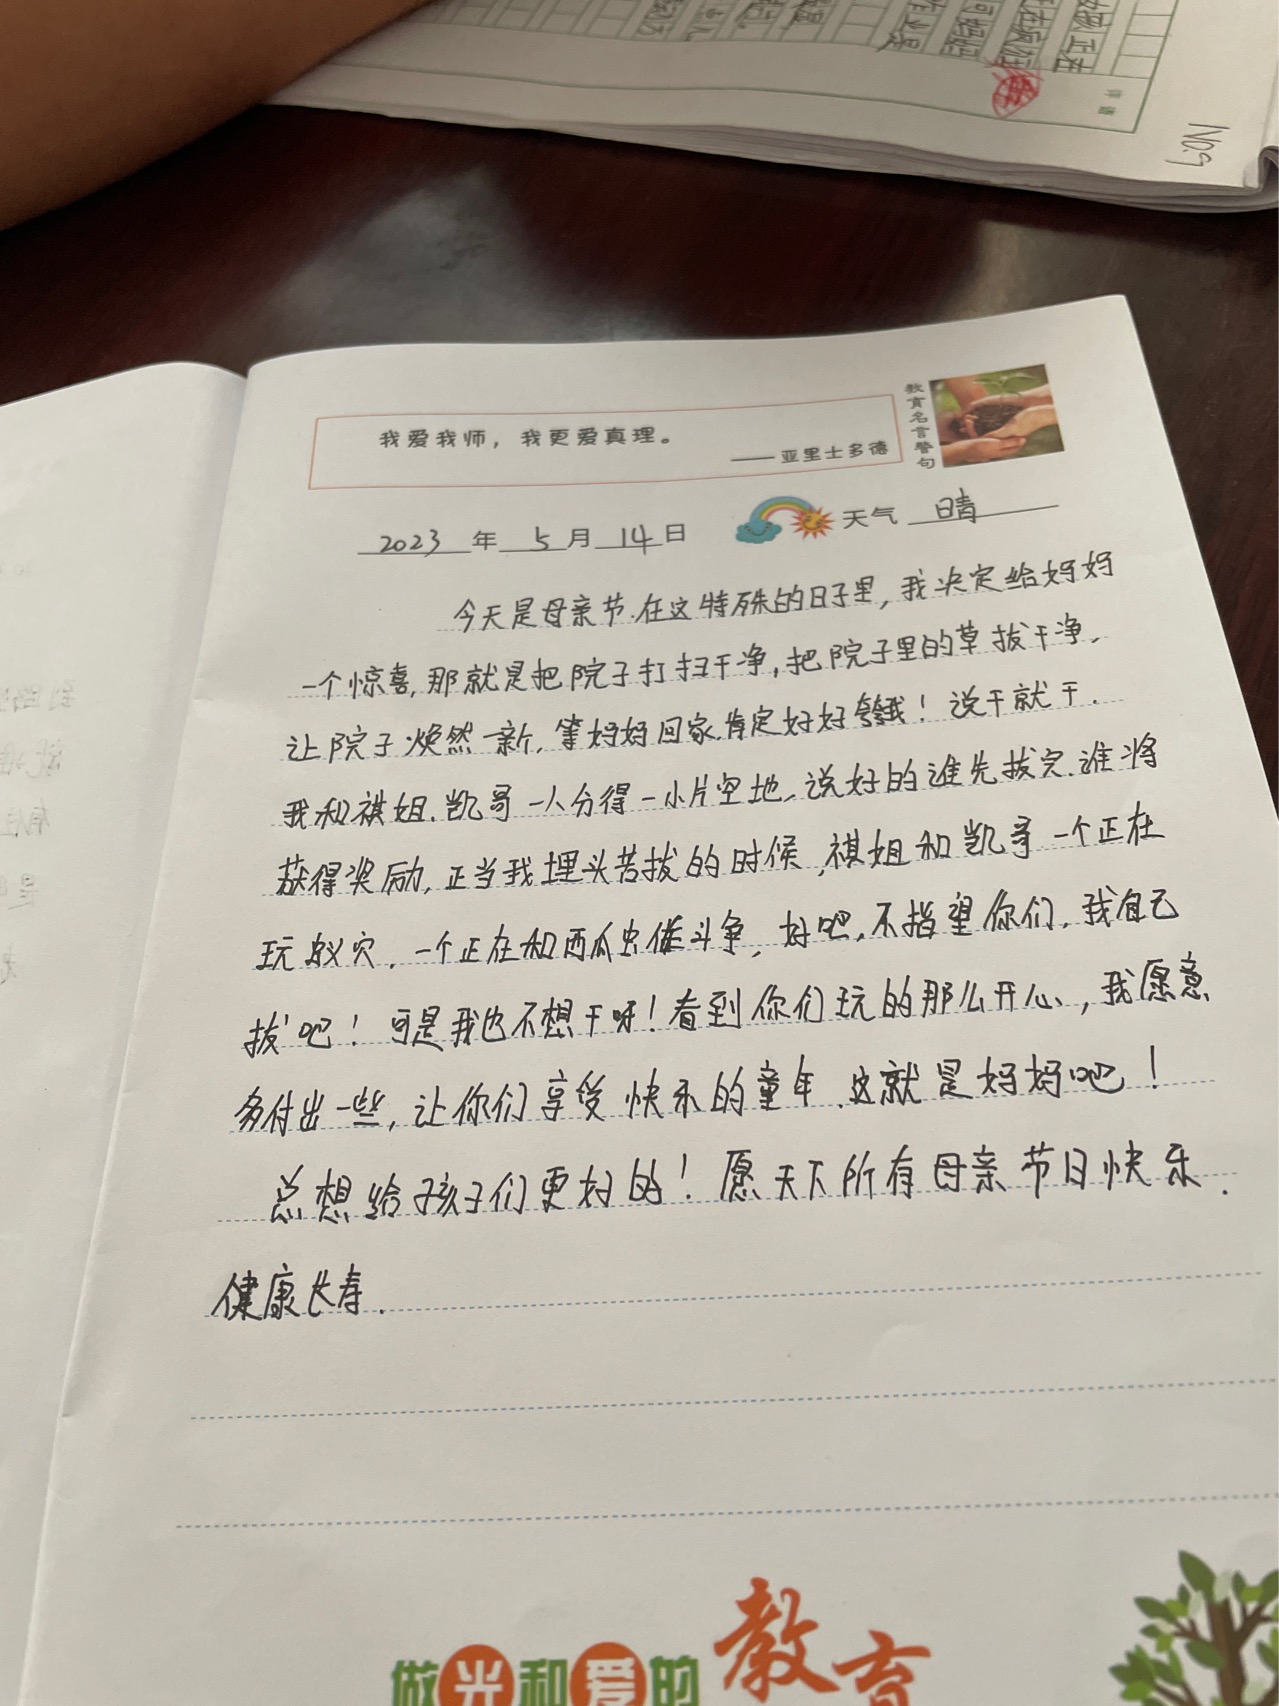 No.9
评
我爱我师，我更爱真理。
——亚里士多德
教育名言警句
2023年5月14日 天气 晴
今天是母亲节.在这特殊的日子里,我决定给妈妈
一个惊喜,那就是把院子打扫干净,把院子里的草拔干净,
让院子焕然一新,等妈妈回家,肯定好好夸我!说干就干.
我和祺姐.凯哥一人分得一小片空地,说好的谁先拔完.谁将
获得奖励,正当我埋头苦拔的时候,祺姐和凯哥一个正在
玩蚁穴,一个正在和西瓜虫做斗争,好吧,不指望你们,我自己
拔吧!可是我也不想干呀!看到你们玩的那么开心,我愿意
多付出一些,让你们享受快乐的童年.这就是妈妈吧!
总想给孩子们更好的!愿天下所有母亲节日快乐.
健康长寿.
做光和爱的教育